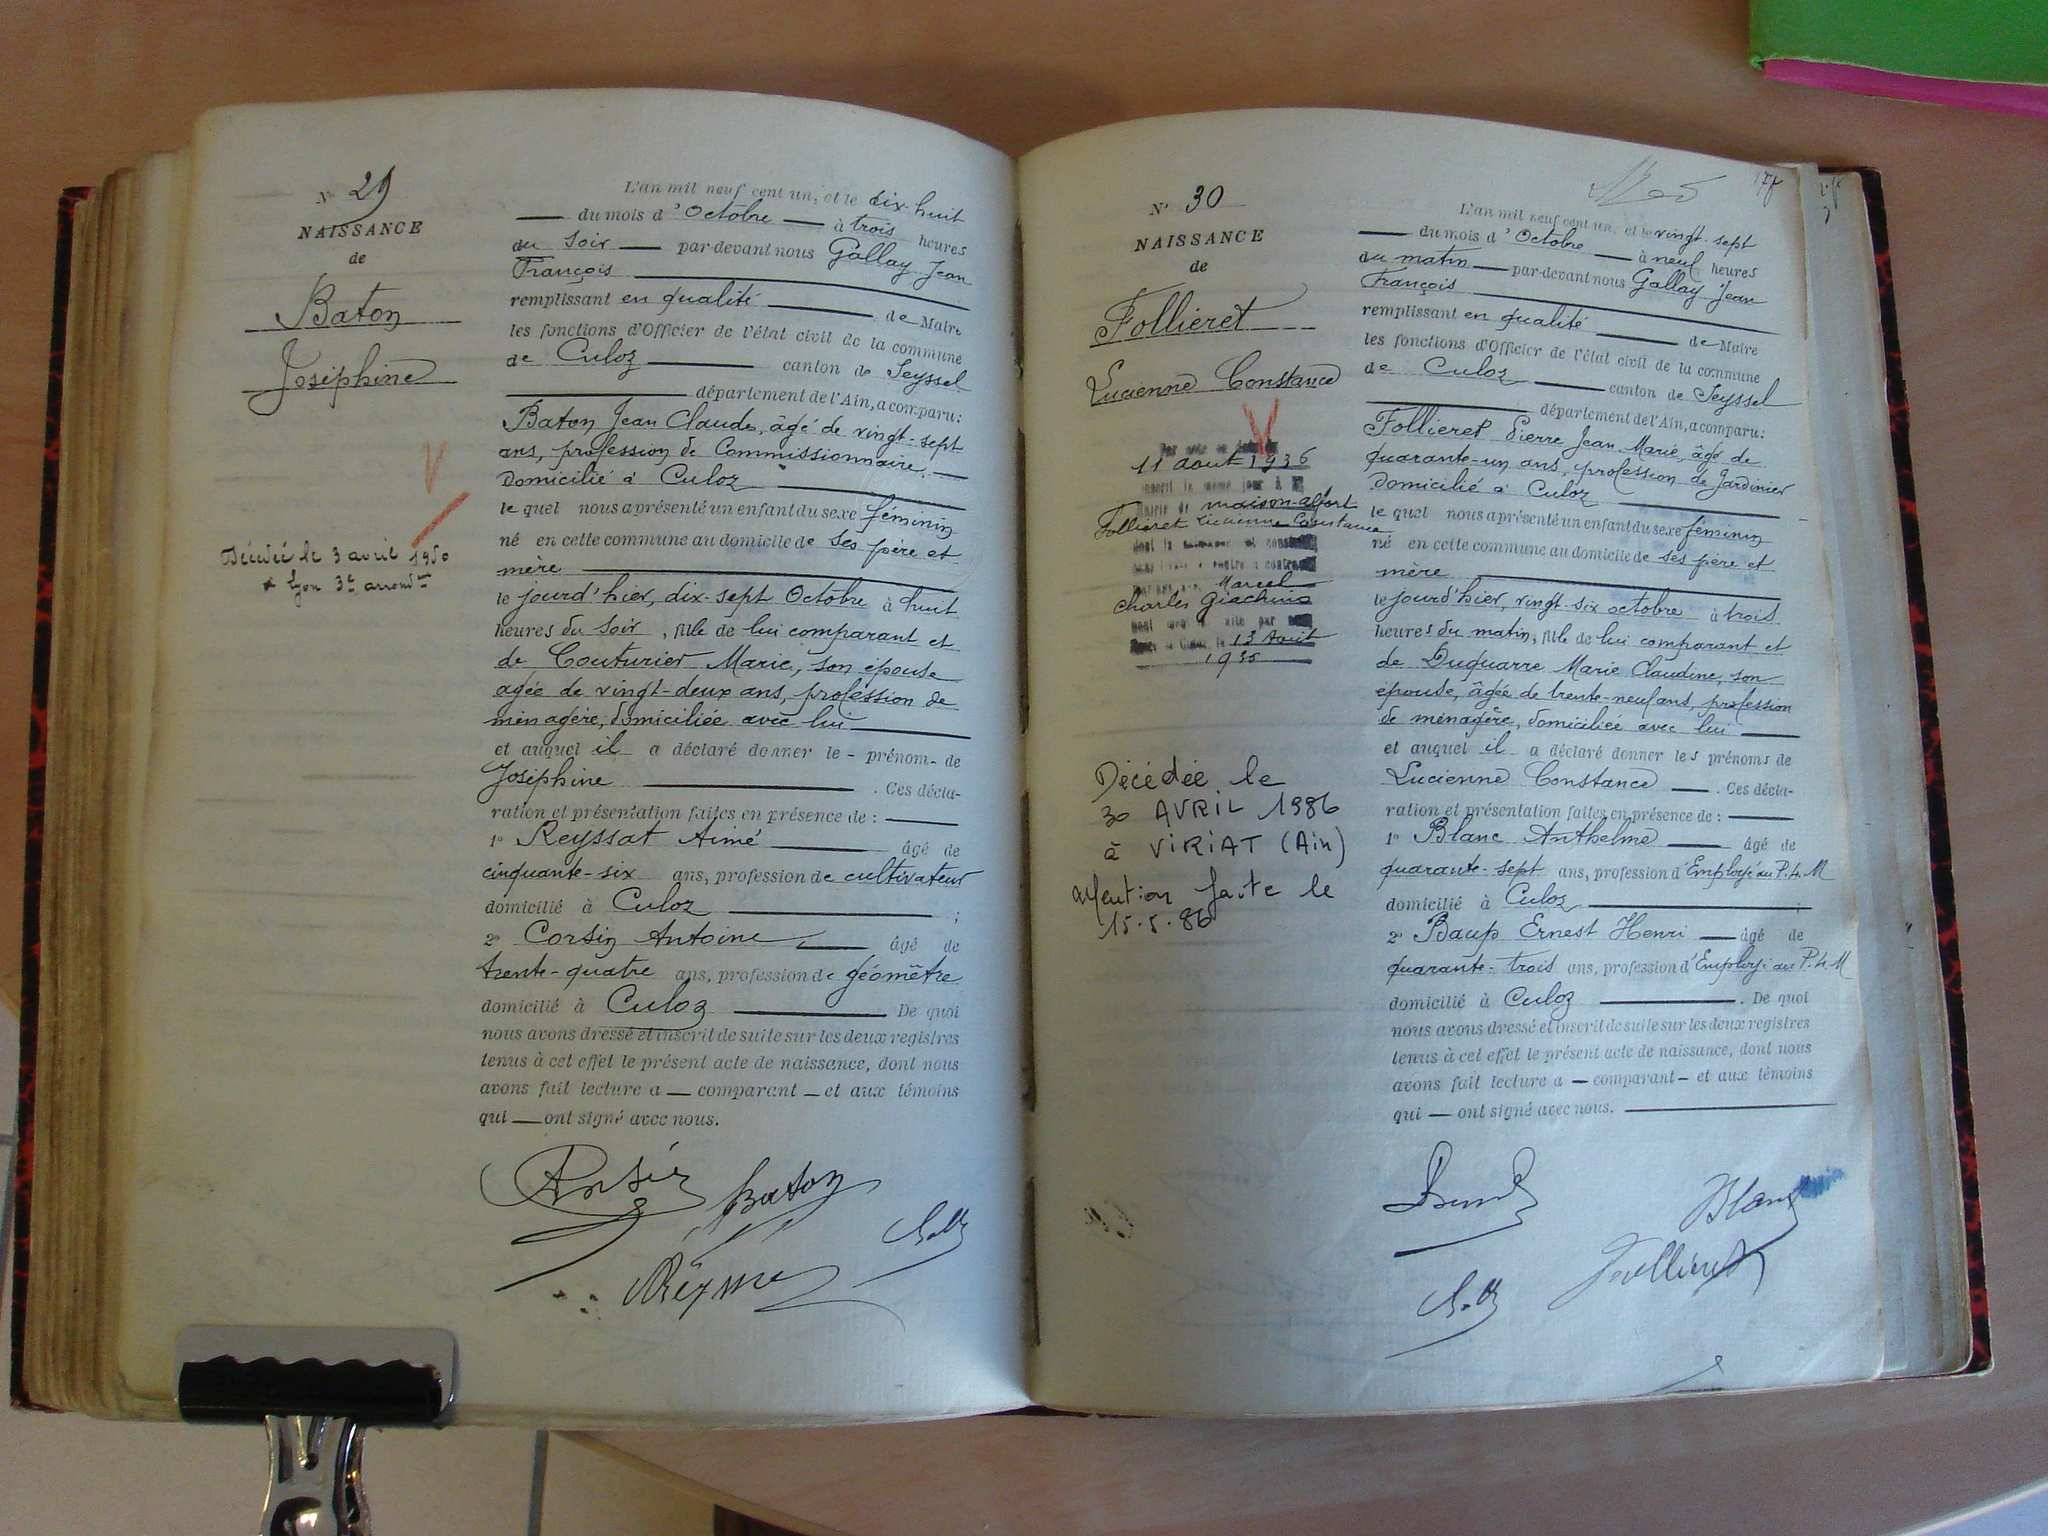 N° 29
NAISSANCE
de
Baton
Joséphine
Décédée le 3 avril 1950
à Lyon 3e arrondt
L'an mil neuf cent un, et le dix-huit
du mois d'Octobre à trois heures
du soir par-devant nous Gallay Jean
François
remplissant en qualité de Maire
les fonctions d'Officier de l'état civil de la commune
de Culoz canton de Seyssel
département de l'Ain, a comparu:
Baton Jean Claude, âgé de vingt-sept
ans, profession de Commissionnaire,
domicilié à Culoz
le quel nous a présenté un enfant du sexe féminin
né en cette commune au domicile de ses père et
mère
le jourd'hier, dix-sept Octobre à huit
heures du soir, fille de lui comparant et
de Couturier Marie, son épouse
agée de vingt-deux ans, profession de
ménagère, domiciliée avec lui
et auquel il a déclaré donner le - prénom - de
Joséphine . Ces décla-
ration et présentation faites en présence de :
1° Reyssat Aimé âgé de
cinquante-six ans, profession de cultivateur
domicilié à Culoz ;
2° Corsin Antoine, âgé de
trente-quatre ans, profession de géomètre
domicilié à Culoz De quoi
nous avons dressé et inscrit de suite sur les deux registres
tenus à cet effet le présent acte de naissance, dont nous
avons fait lecture a — comparant — et aux témoins
qui — ont signé avec nous.
Baton
N° 30
NAISSANCE
de
Follieret
Lucienne Constance
11 août 1936
inscrit le même jour à
Mairie de maison-alfort
Follieret Lucienne Constance
Marcel
Charles Giachino
13 Août
Décédée le
30 AVRIL 1986
à VIRIAT (Ain)
Mention faite le
15.5.86
177
L'an mil neuf cent un, et le vingt-sept
du mois d'Octobre à neuf heures
du matin par-devant nous Gallay Jean
François
remplissant en qualité de Maire
les fonctions d'Officier de l'état civil de la commune
de Culoz canton de Seyssel
département de l'Ain, a comparu:
Follieret Pierre Jean Marie, âgé de
quarante-un ans, profession de Jardinier
domicilié à Culoz
le quel nous a présenté un enfant du sexe féminin
né en cette commune au domicile de ses père et
mère
le jourd'hier, vingt-six octobre à trois
heures du matin, fille de lui comparant et
de Duquarre Marie Claudine, son
épouse, âgée de trente-neuf ans, profession
de ménagère, domiciliée avec lui
et auquel il a déclaré donner les prénoms de
Lucienne Constance . Ces décla-
ration et présentation faites en présence de :
1° Blanc Anthelme âgé de
quarante-sept ans, profession d'Employé au P.L.M
domicilié à Culoz ;
2° Baup Ernest Henri âgé de
quarante-trois ans, profession d'Employé au P.L.M
domicilié à Culoz . De quoi
nous avons dressé et inscrit de suite sur les deux registres
tenus à cet effet le présent acte de naissance, dont nous
avons fait lecture a — comparant — et aux témoins
qui — ont signé avec nous.
Blanc
Follieret